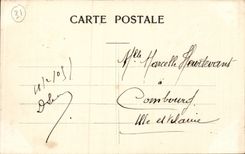 31
CARTE POSTALE
Mlle Marcelle Heurtevant
à
Combourg
Ille et Vilaine